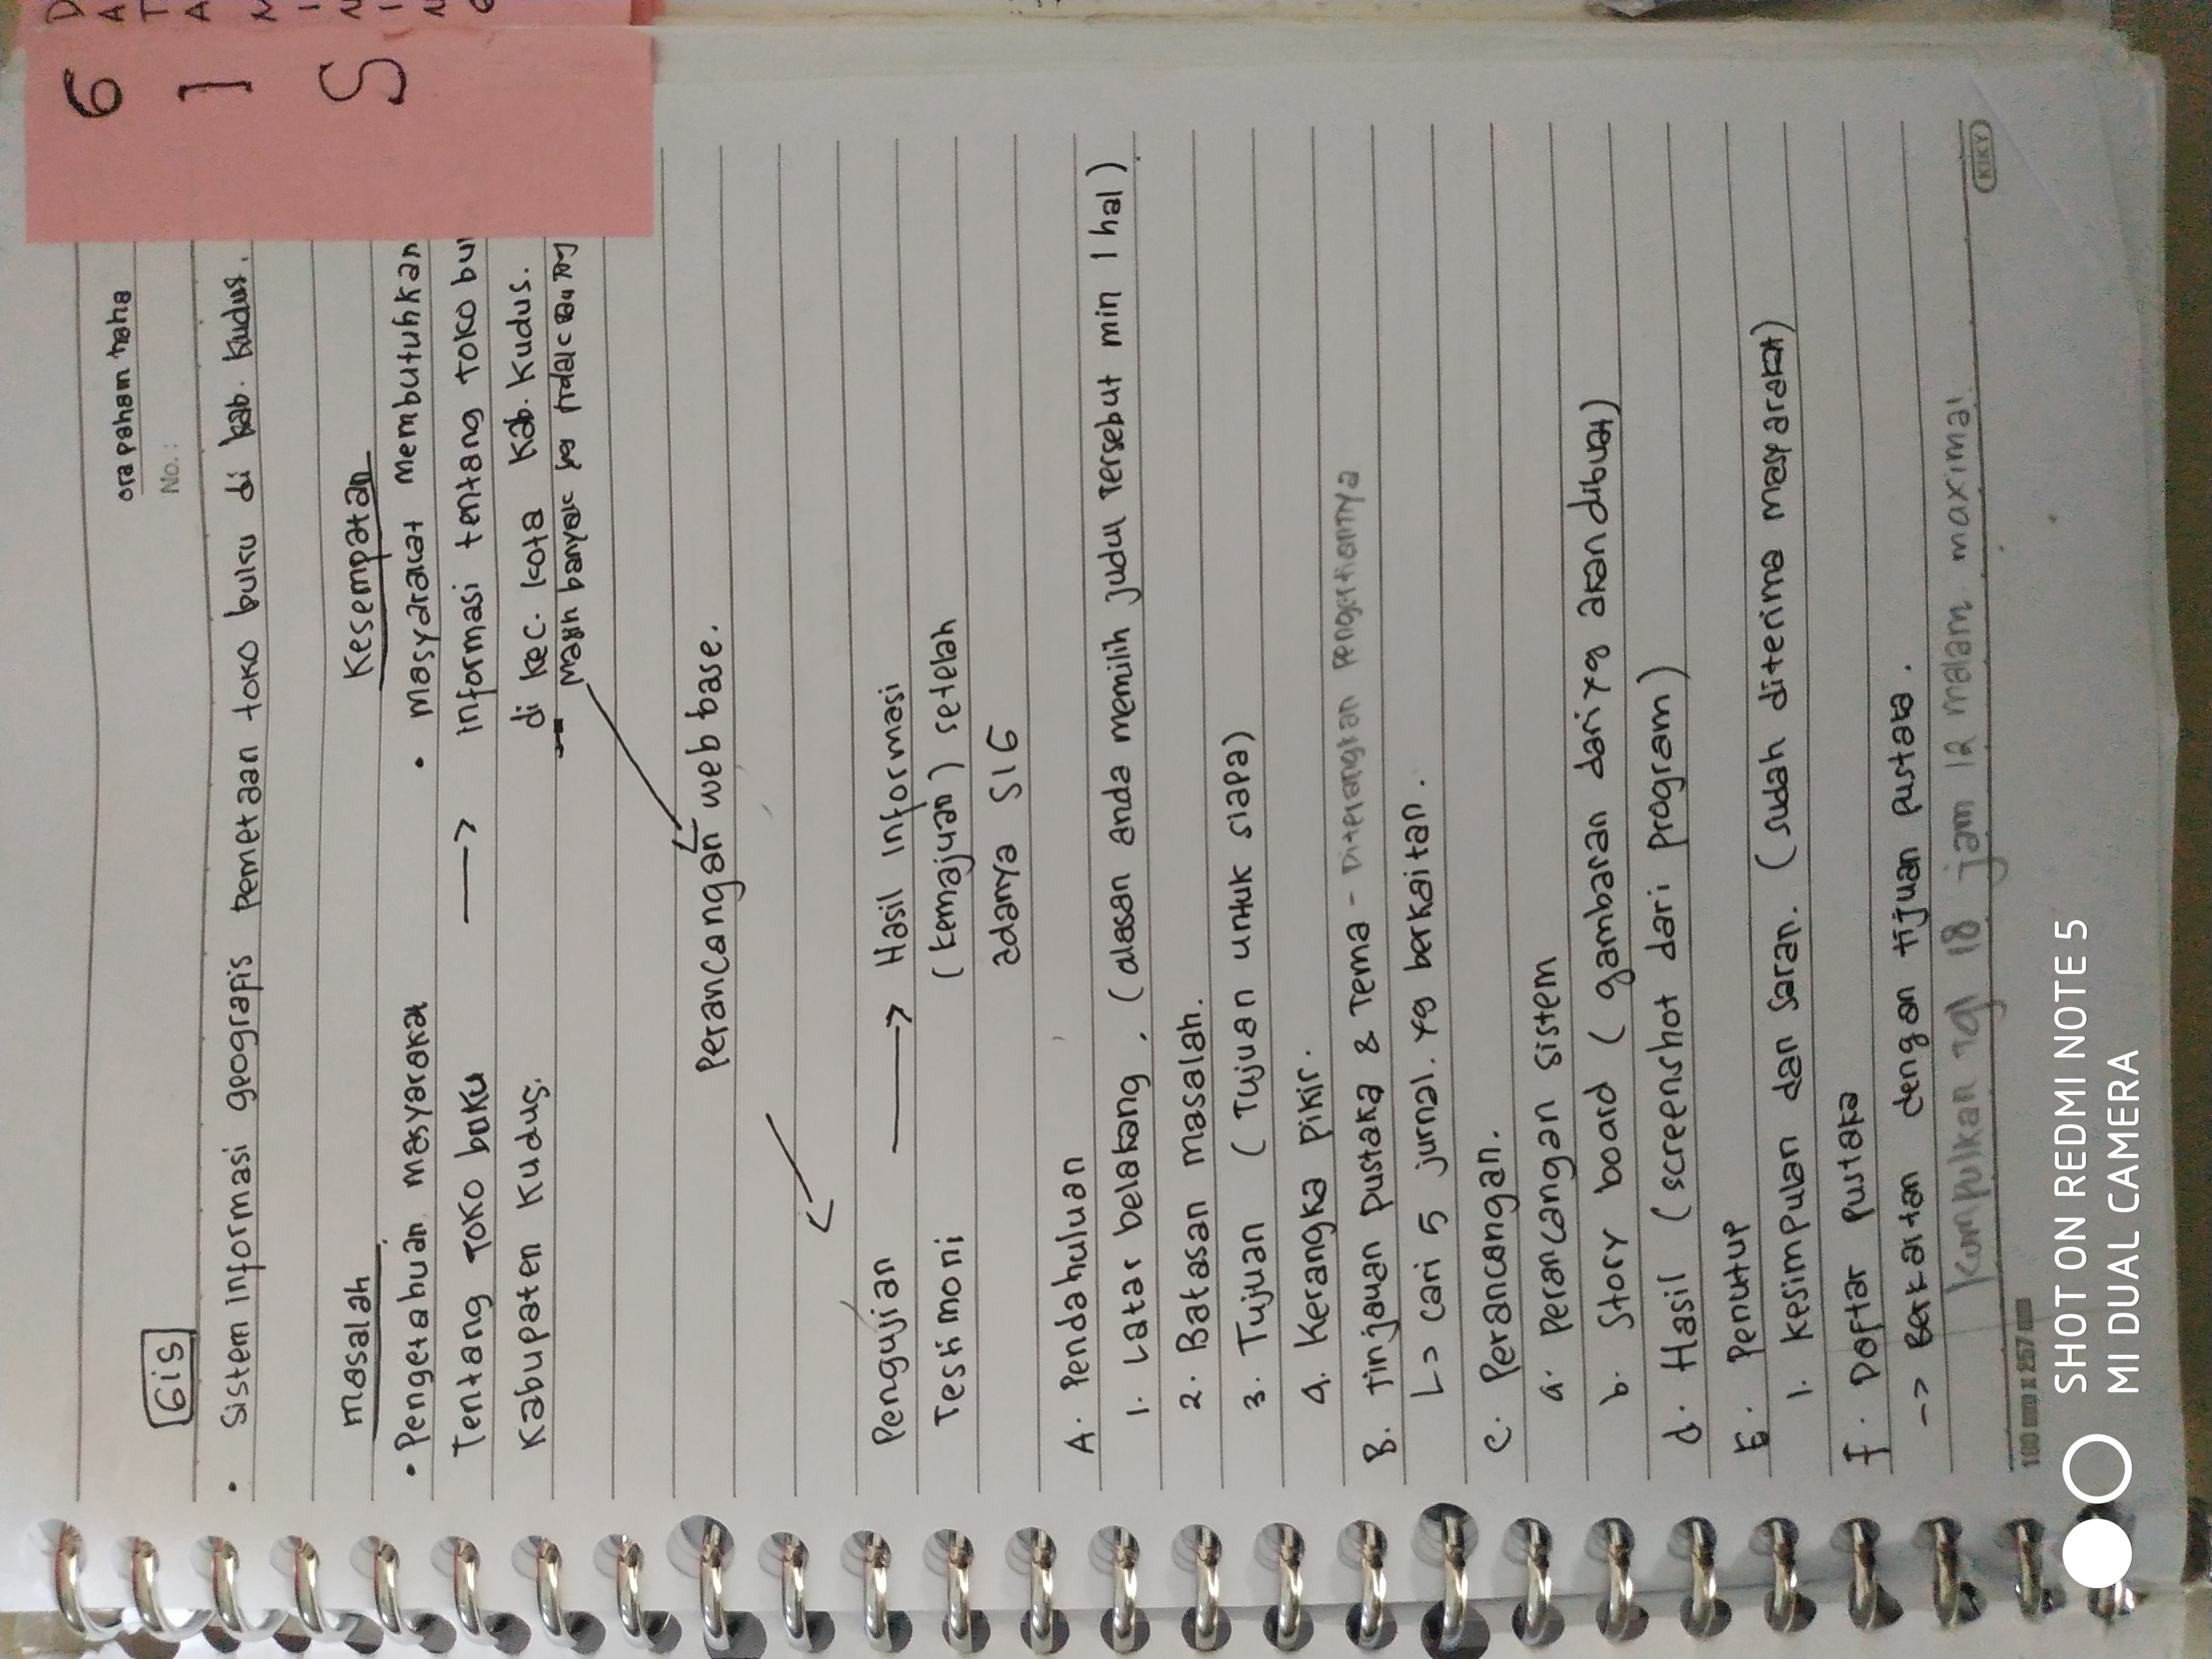 ora paham haha
No. :
GiS
• Sistem informasi geografis pemetaan toko buku di kab. Kudus.
masalah
Kesempatan
• Pengetahuan masyarakat
• masyarakat membutuhkan
Tentang Toko buku
→
informasi tentang toko bu
Kabupaten Kudus.
di kec. kota Kab. Kudus.
Masih banyak yg tidak tau
Perancangan web base.
Pengujian → Hasil informasi
Testimoni (kemajuan) setelah
adanya SIG
A. Pendahuluan
1. Latar belakang. (alasan anda memilih judul tersebut min 1 hal)
2. Batasan masalah.
3. Tujuan (Tujuan untuk siapa)
4. Kerangka pikir.
B. Tinjauan pustaka & Tema - Diterangkan Pengertiannya
↳ cari 5 jurnal. yg berkaitan.
C. Perancangan.
a. perancangan sistem
b. Story board (gambaran dari yg akan dibuat)
d. Hasil (screenshot dari program)
E. Penutup
1. kesimpulan dan saran. (sudah diterima masyarakat)
f. Daftar Pustaka
-> Berkaitan dengan tijuan pustaka.
kumpulkan tgl 18 jam 12 malam maximal
KIKY
180 mm x 257 mm
GIS
DATA MINING
SHOT ON REDMI NOTE 5
MI DUAL CAMERA